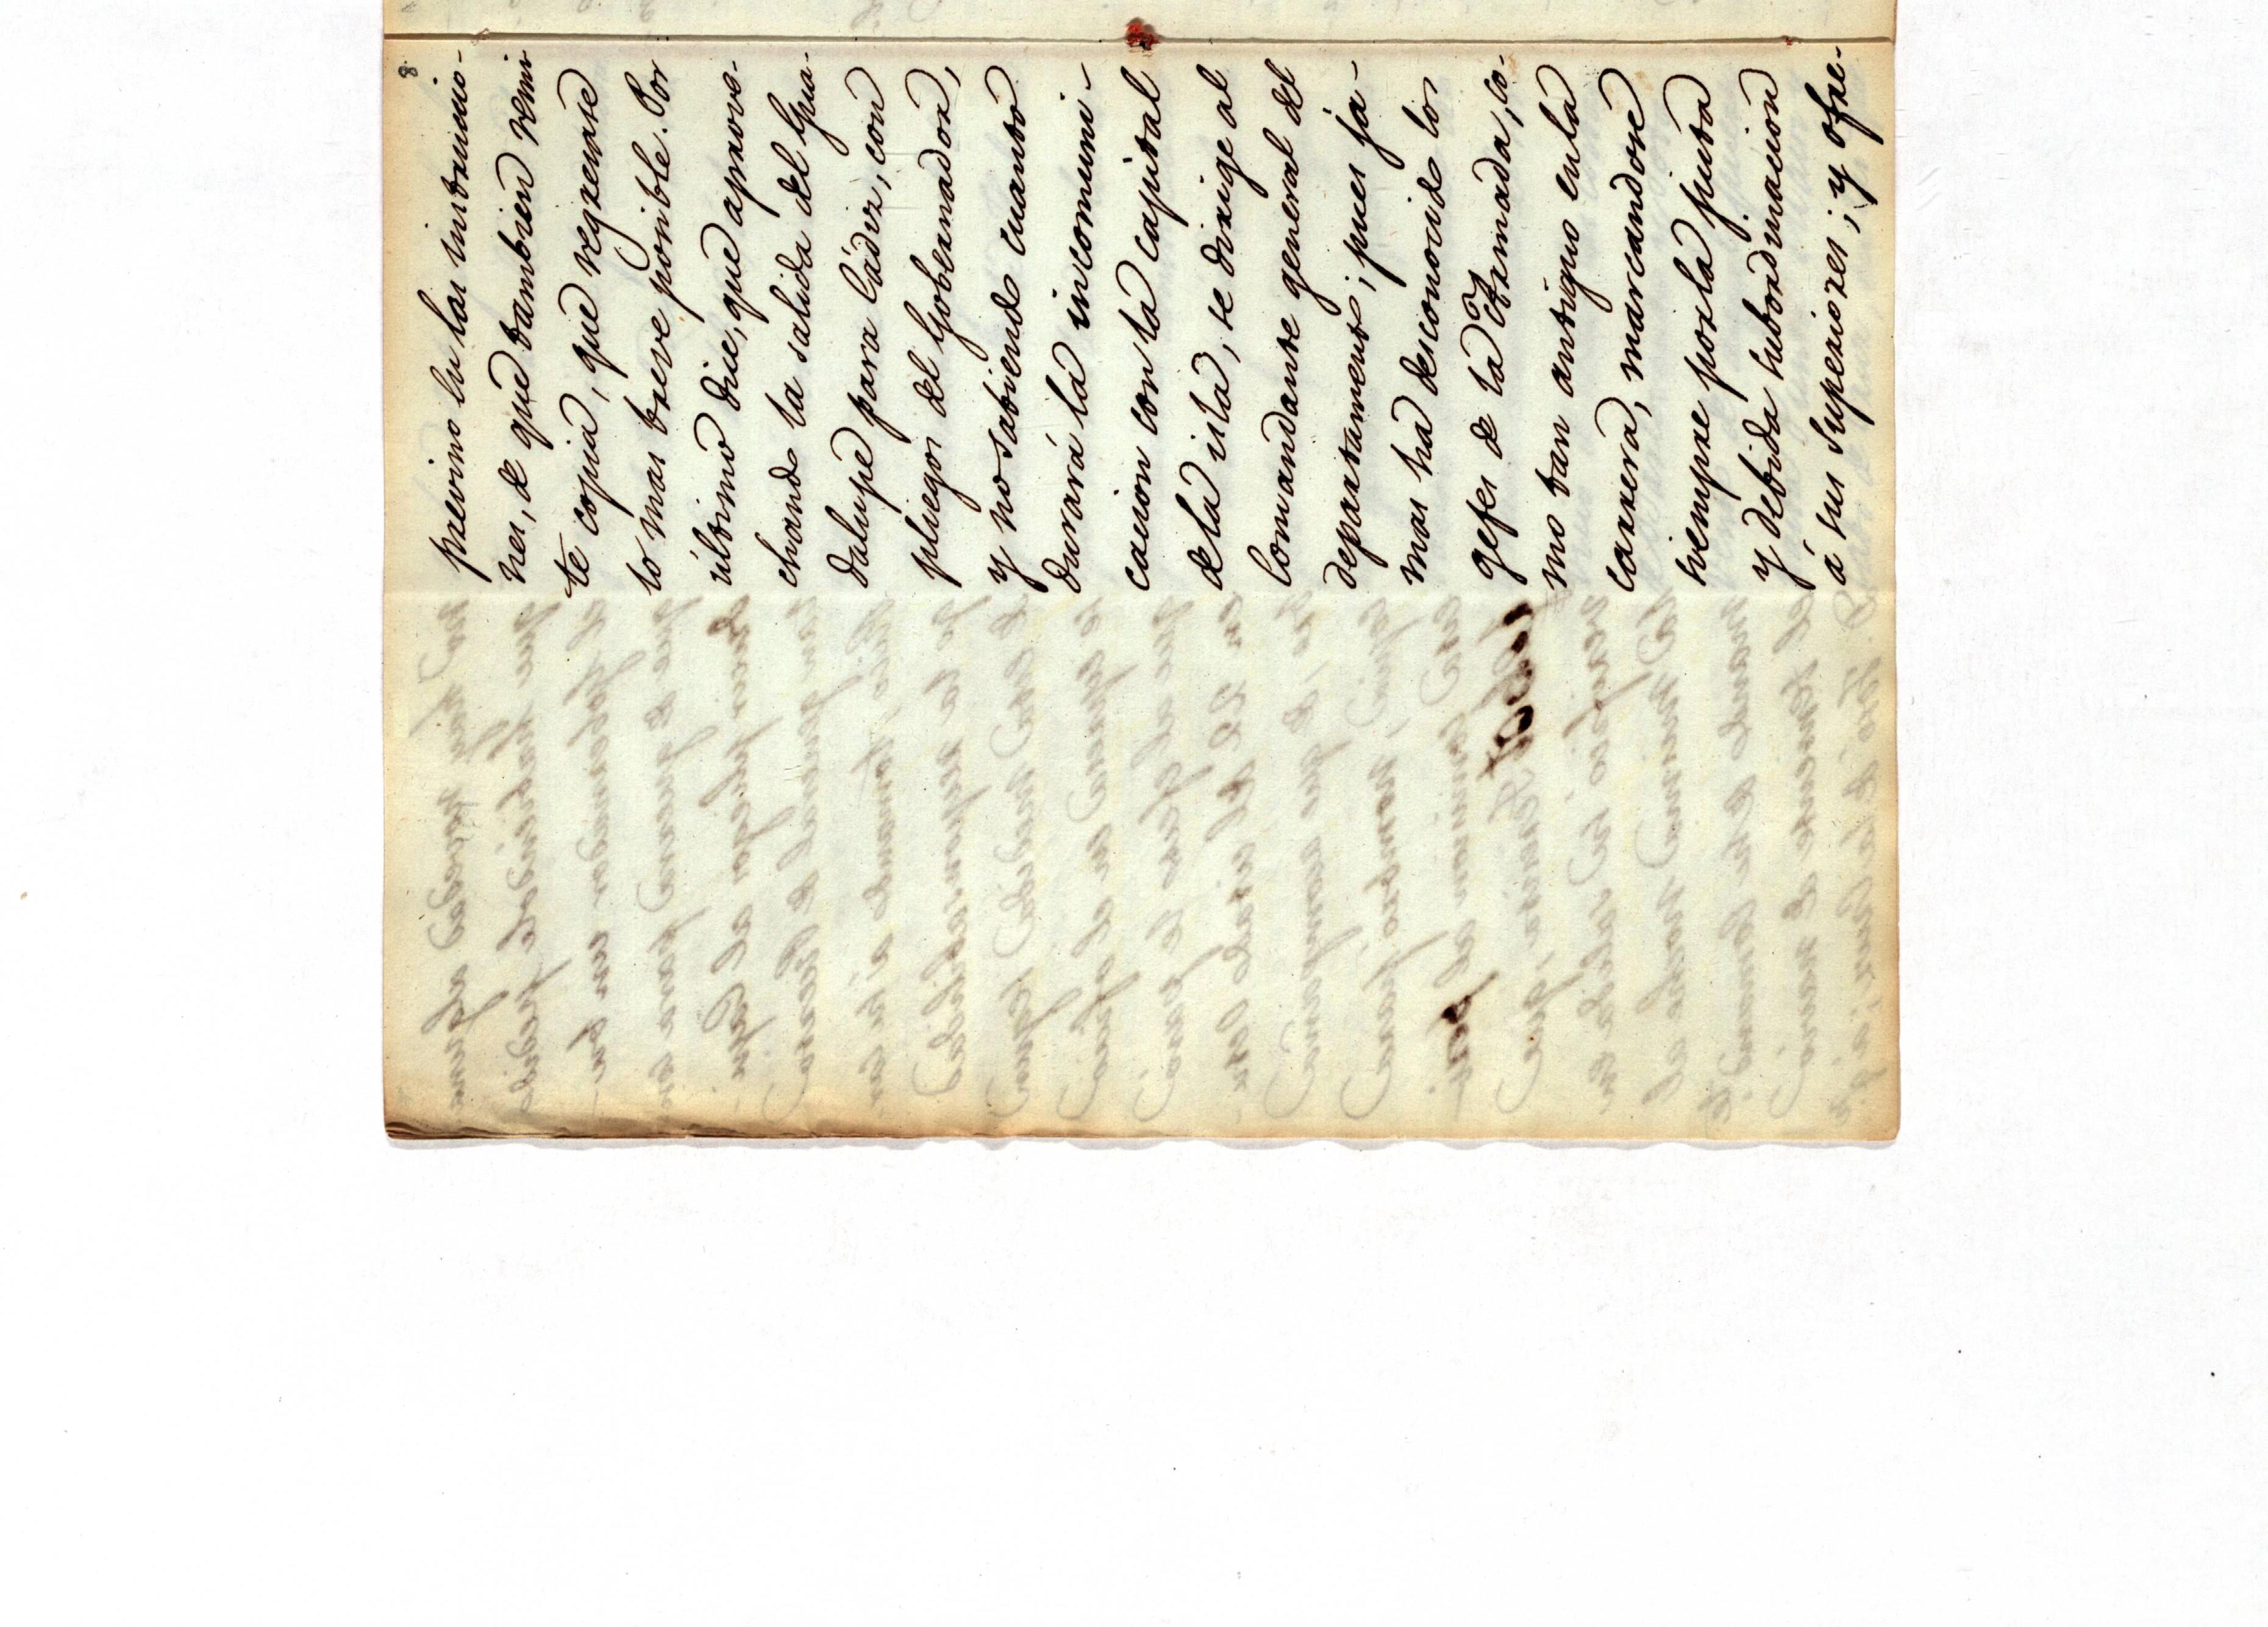 8.
previno en las instruccio-
nes, de que tambien remi
te copia, que regresase
lo mas breve posible. Por
último dice, que aprove-
chando la salida del Gua-
dalupe para Cádiz, con
pliegos del Gobernador,
y no sabiendo cuanto
durará la incomuni-
cacion con la capital
de la isla, se dirige al
Comandante general del
departamento; pues ja-
mas ha desconocido los
gefes de la Armada, co-
mo tan antiguo en la
carrera, marcandose
siempre por la justa
y debida subordinacion
á sus superiores; y ofre-